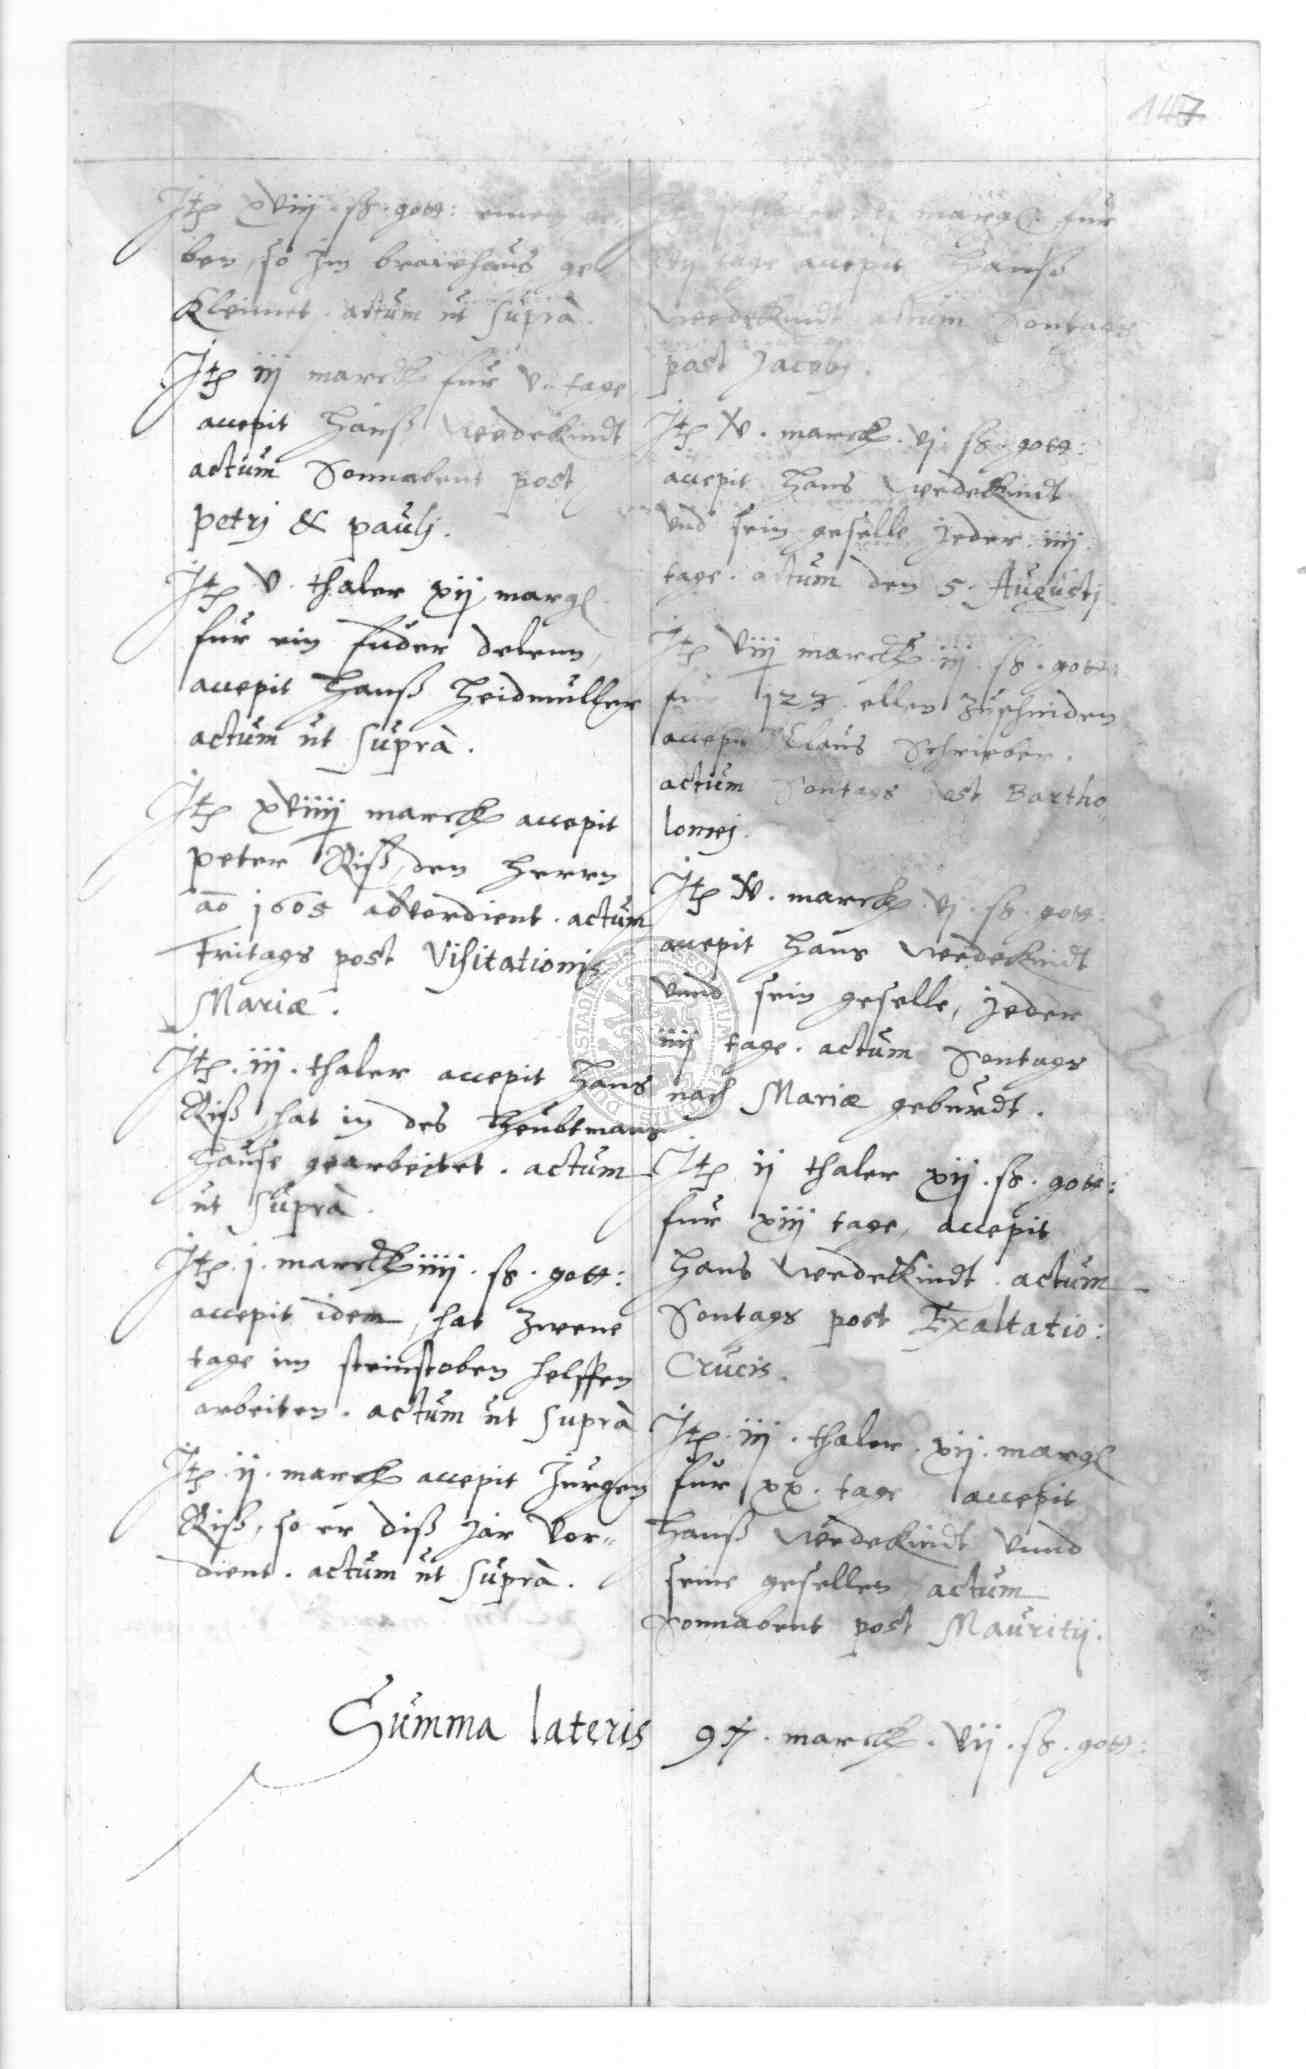 147
Jtem xviij. ß. gott: einem
ben, so Jm brawhaus ge-
kleimet. actum ut suprà.
Jtem iij marck fur v. tage
accepit Hanß Wedekindt
actum Sonnabent post
petrj & paulj.
Jtem v. thaler xij margl
fur ein fuder delenn,
accepit Hanß Heidmuller
actum ut suprà.
Jtem xviiij marck accepit
peter Riß, den Herrn
ao 1605 abverdient. actum
Fritags post Visitationis
Mariæ.
Jtem. iij. thaler accepit Hans
Riß, hat in des Heubtmans
Hause gearbeitet. actum
ut suprà.
Jtem. j. marck iiij. ß. gott:
accepit idem, hat zwene
tage im steinstoben helffen
arbeiten. actum ut suprà
Jtem. ij. marck accepit Jurgen
Riß, so er diß Jar vor-
dient. actum ut suprà.
margl. fur
tage accepit Hanß
Wedekindt actum Sontags
post Jacobj.
Jtem xv. marck. vj ß. gott:
accepit Hans Wedekindt
vnd sein geselle, Jeder. iiij
tage. actum den 5. Augustj
Jtem viij marck. iij. ß. gott:
fur 123. ellen zuschniden
accepit Claus Schrieber.
actum Sontags post Bartho
lomej.
Jtem xv. marck. vj. ß. gott:
accepit Hans Wedekindt
vnnd sein geselle, Jeder
iiij tage. actum Sontags
nach Mariæ geburdt.
Jtem ij thaler xij. ß. gott:
fur xiij tage, accepit
Hans Wedekindt. actum
Sontags post Exaltatio:
Crucis.
Jtem. iij. thaler. xij. margl
fur xx. tage accepit
Hanß Wedekindt vnnd
seine gesellen actum
Sonnabent post Mauritij.
Summa lateris 97. marck. vij. ß. gott: